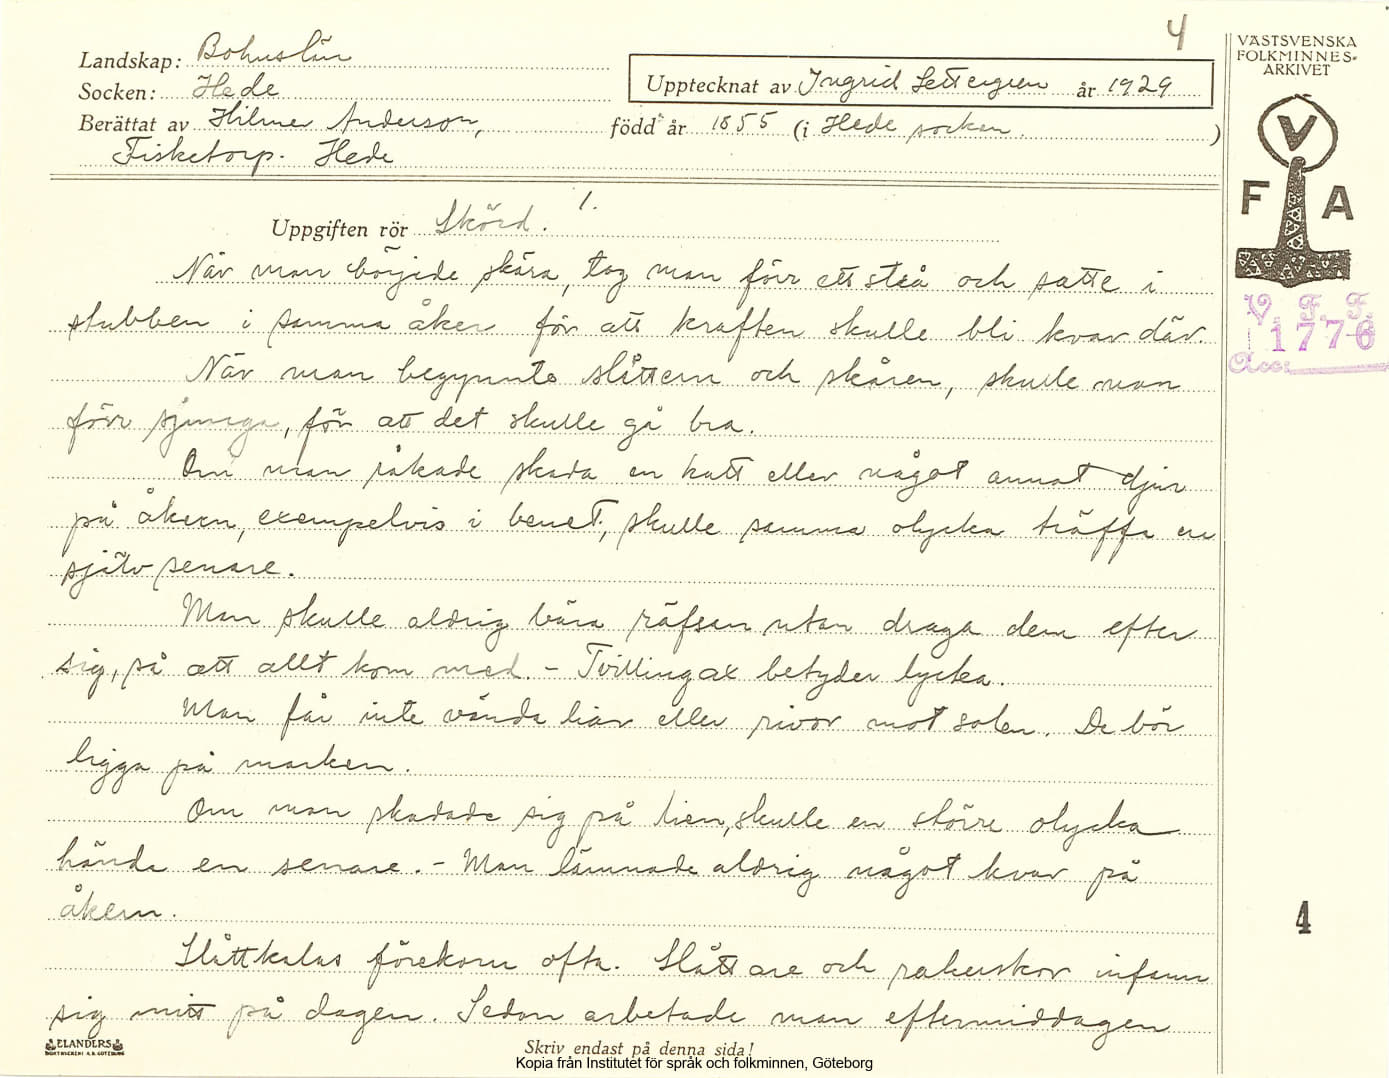 4
VÄSTSVENSKA
FOLKMINNES-
ARKIVET
Landskap: Bohuslän
Socken: Hede
Upptecknat av Ingrid Settergren år 1929
Berättat av Hilmer Anderson, född år 1855 (i Hede socken )
Fisketorp. Hede
V
F A
V. F. F.
1776
Acc:
1.
Uppgiften rör Skörd.
När man började skära, tog man förr ett strå och satte i
stubben i samma åker för att kraften skulle bli kvar där.
När man begynnte slåttern och skåren, skulle man
förr sjunga, för att det skulle gå bra.
Om man råkade skada en katt eller något annat djur
på åkern, exempelvis i benet, skulle samma olycka träffa en
själv senare.
Man skulle aldrig bära räfsan utan draga dem efter
sig, så att allt kom med. - Tvillingax betyder lycka.
Man får inte vända liar eller rivor mot solen. De bör
ligga på marken.
Om man skadade sig på lien, skulle en större olycka
hända en senare. - Man lämnade aldrig något kvar på
åkern.
Slåttkalas förekom ofta. Slåttare och rakerskor infann
sig mitt på dagen. Sedan arbetade man eftermiddagen
4
ELANDERS
BOKTRYCKERI A.B. GÖTEBORG
Skriv endast på denna sida!
Kopia från Institutet för språk och folkminnen, Göteborg